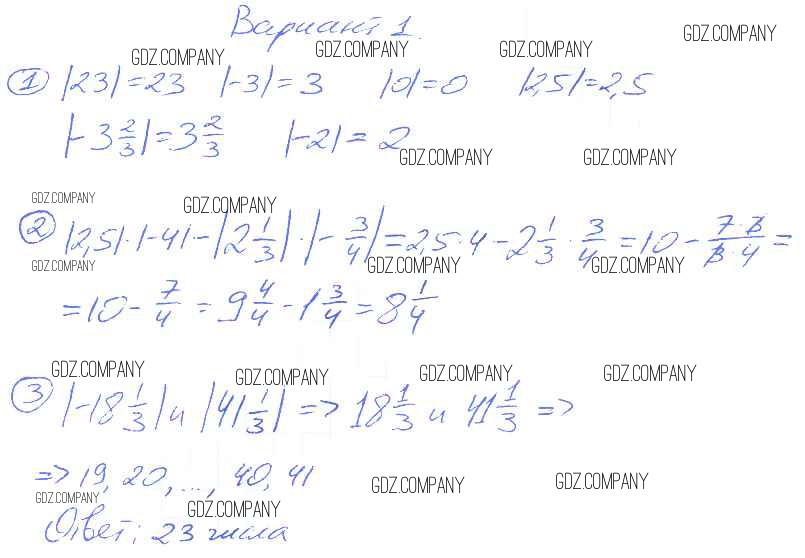 Вариант 1.
GDZ.COMPANY GDZ.COMPANY GDZ.COMPANY GDZ.COMPANY
① |23|=23 |-3|=3 |0|=0 |2,5|=2,5
|-3 2/3|=3 2/3 |-2|=2
GDZ.COMPANY GDZ.COMPANY
GDZ.COMPANY GDZ.COMPANY
② |2,5|·|-4|-|2 1/3|·|-3/4|=2,5·4-2 1/3·3/4=10-7·3/3·4=
GDZ.COMPANY GDZ.COMPANY GDZ.COMPANY
=10-7/4=9 4/4-1 3/4=8 1/4
GDZ.COMPANY GDZ.COMPANY GDZ.COMPANY GDZ.COMPANY
③ |-18 1/3| и |41 1/3| => 18 1/3 и 41 1/3 =>
=> 19, 20, ..., 40, 41
GDZ.COMPANY GDZ.COMPANY GDZ.COMPANY GDZ.COMPANY
Ответ: 23 числа